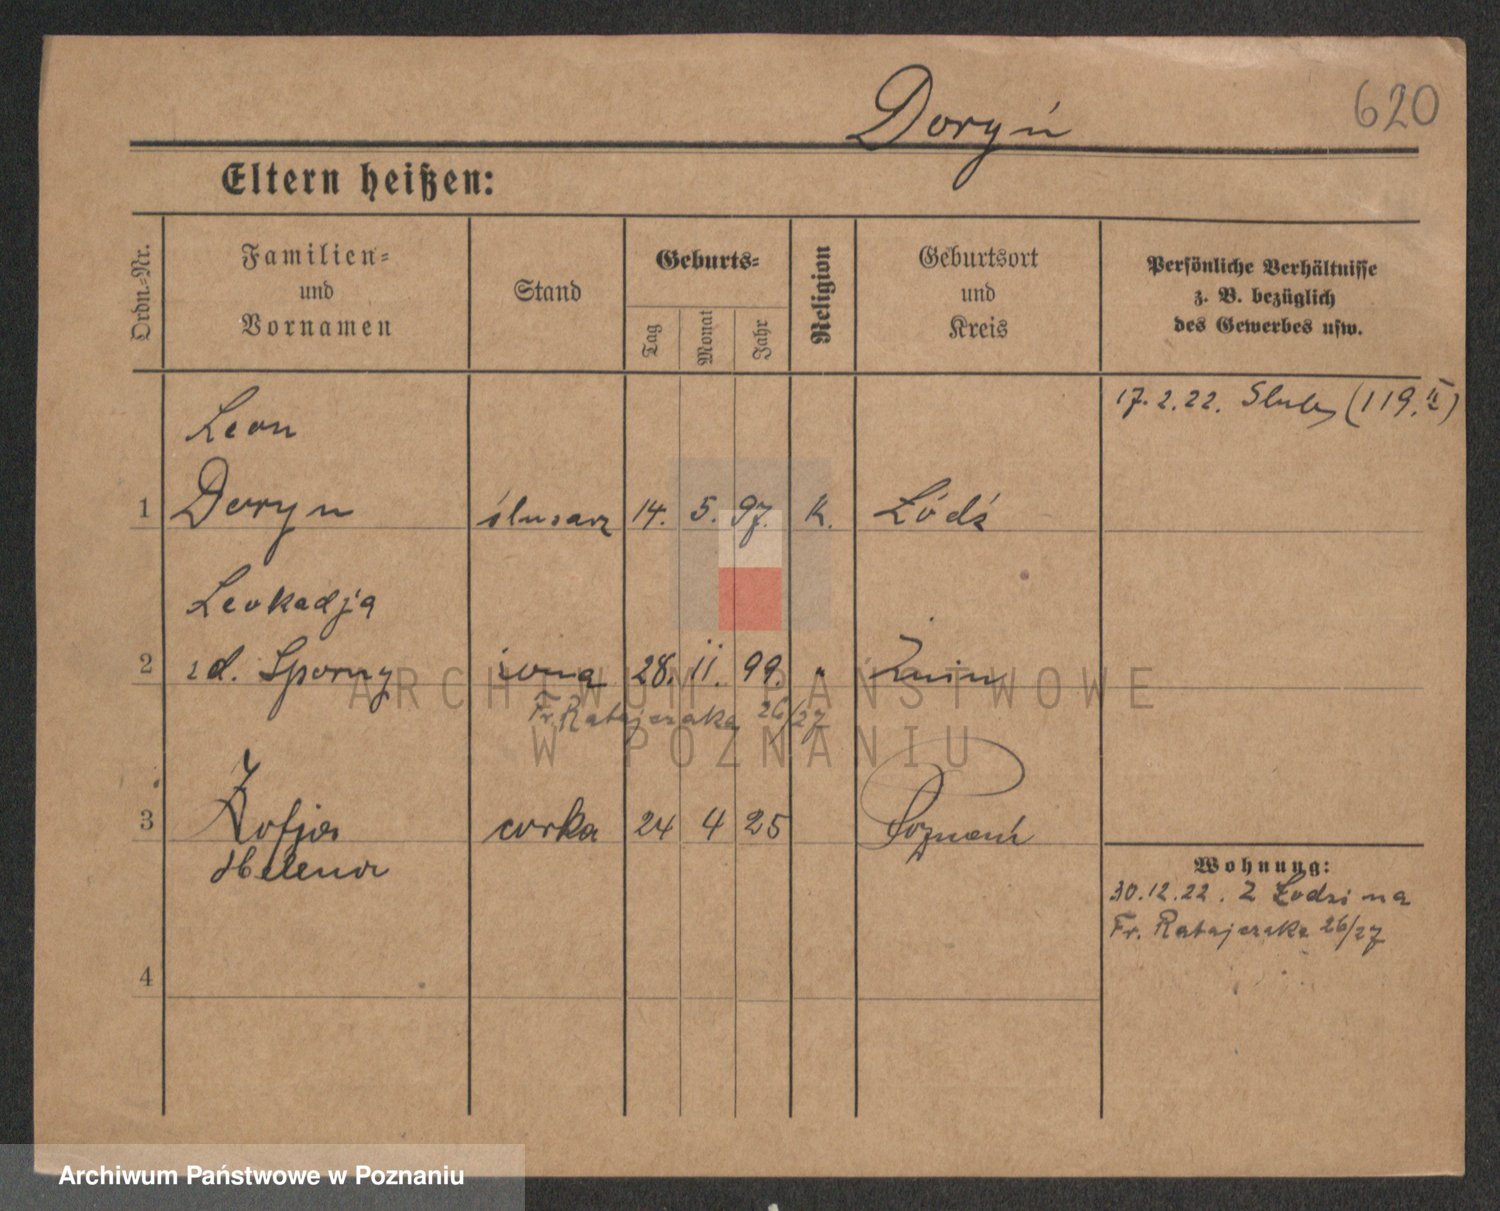 Doryń
620
Eltern heißen:
Ordn.-Nr.
Familien-
und
Vornamen
Stand
Geburts-
Tag
Monat
Jahr
Religion
Geburtsort
und
Kreis
Persönliche Verhältnisse
z. B. bezüglich
des Gewerbes usw.
17. 2. 22. Slub (119. II)
Leon
1 Doryn ślusarz 14. 5. 97. K. Łódź
Leokadja
2 zd. Sporny żona 28. 11. 99. " Żnin
Fr. Ratajczaka 26/27
3 Zofja corka 24 4 25 Poznań
Helena
Wohnung:
30. 12. 22. Z Łodzi na
Fr. Ratajczaka 26/27
4
ARCHIWUM PAŃSTWOWE
W POZNANIU
Archiwum Państwowe w Poznaniu